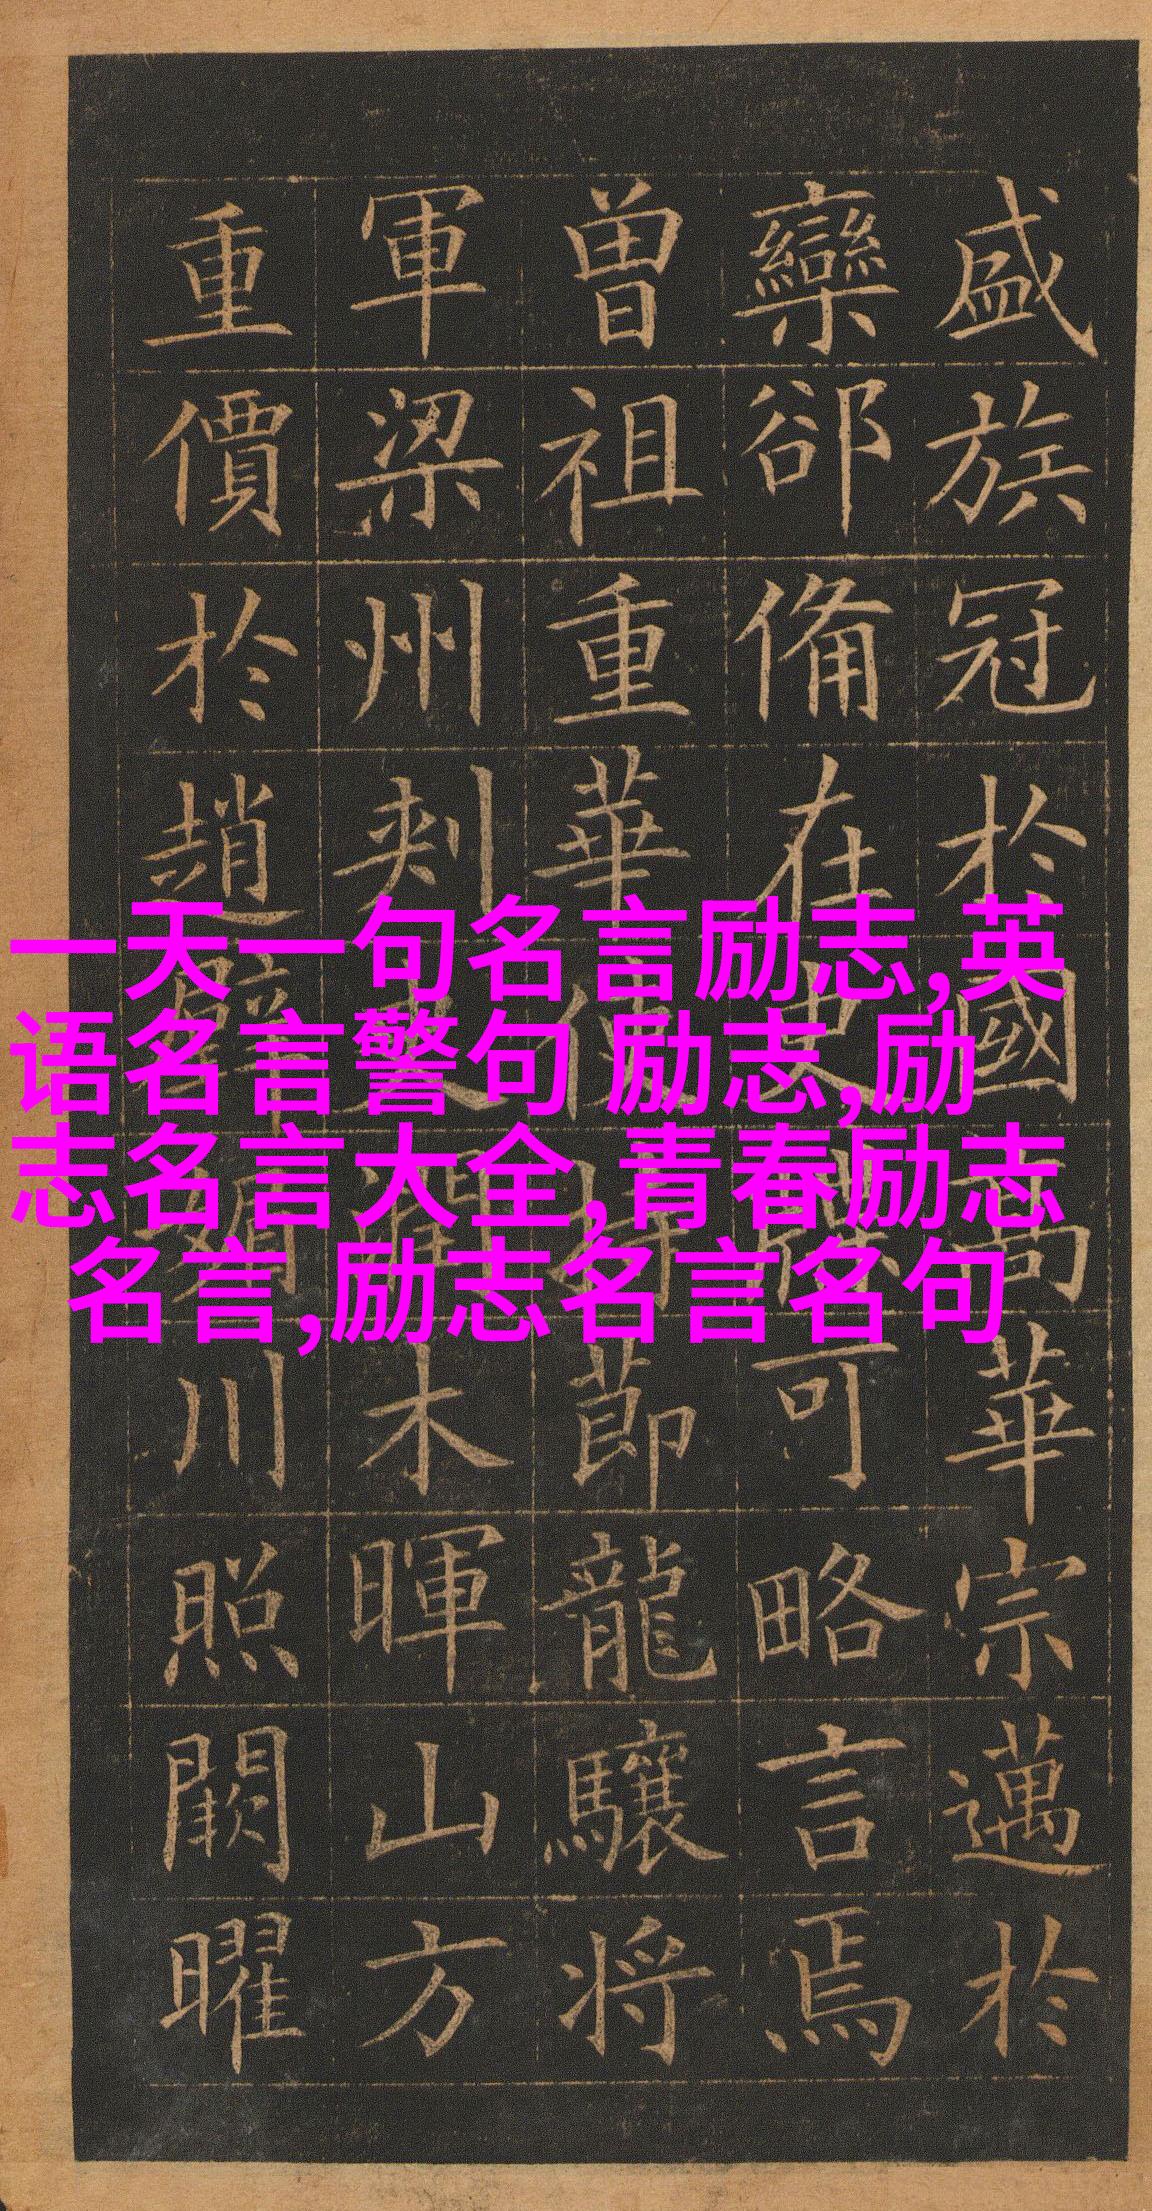 盛族冠於國高華宗邁於
欒郤俻在史牒可略言焉
曾祖重華使持節龍驤将
軍梁州刺史潤木暉山方
重價於趙璧媚川照闕曜
一天一句名言励志,英
语名言警句 励志,励
志名言大全,青春励志
名言,励志名言名句